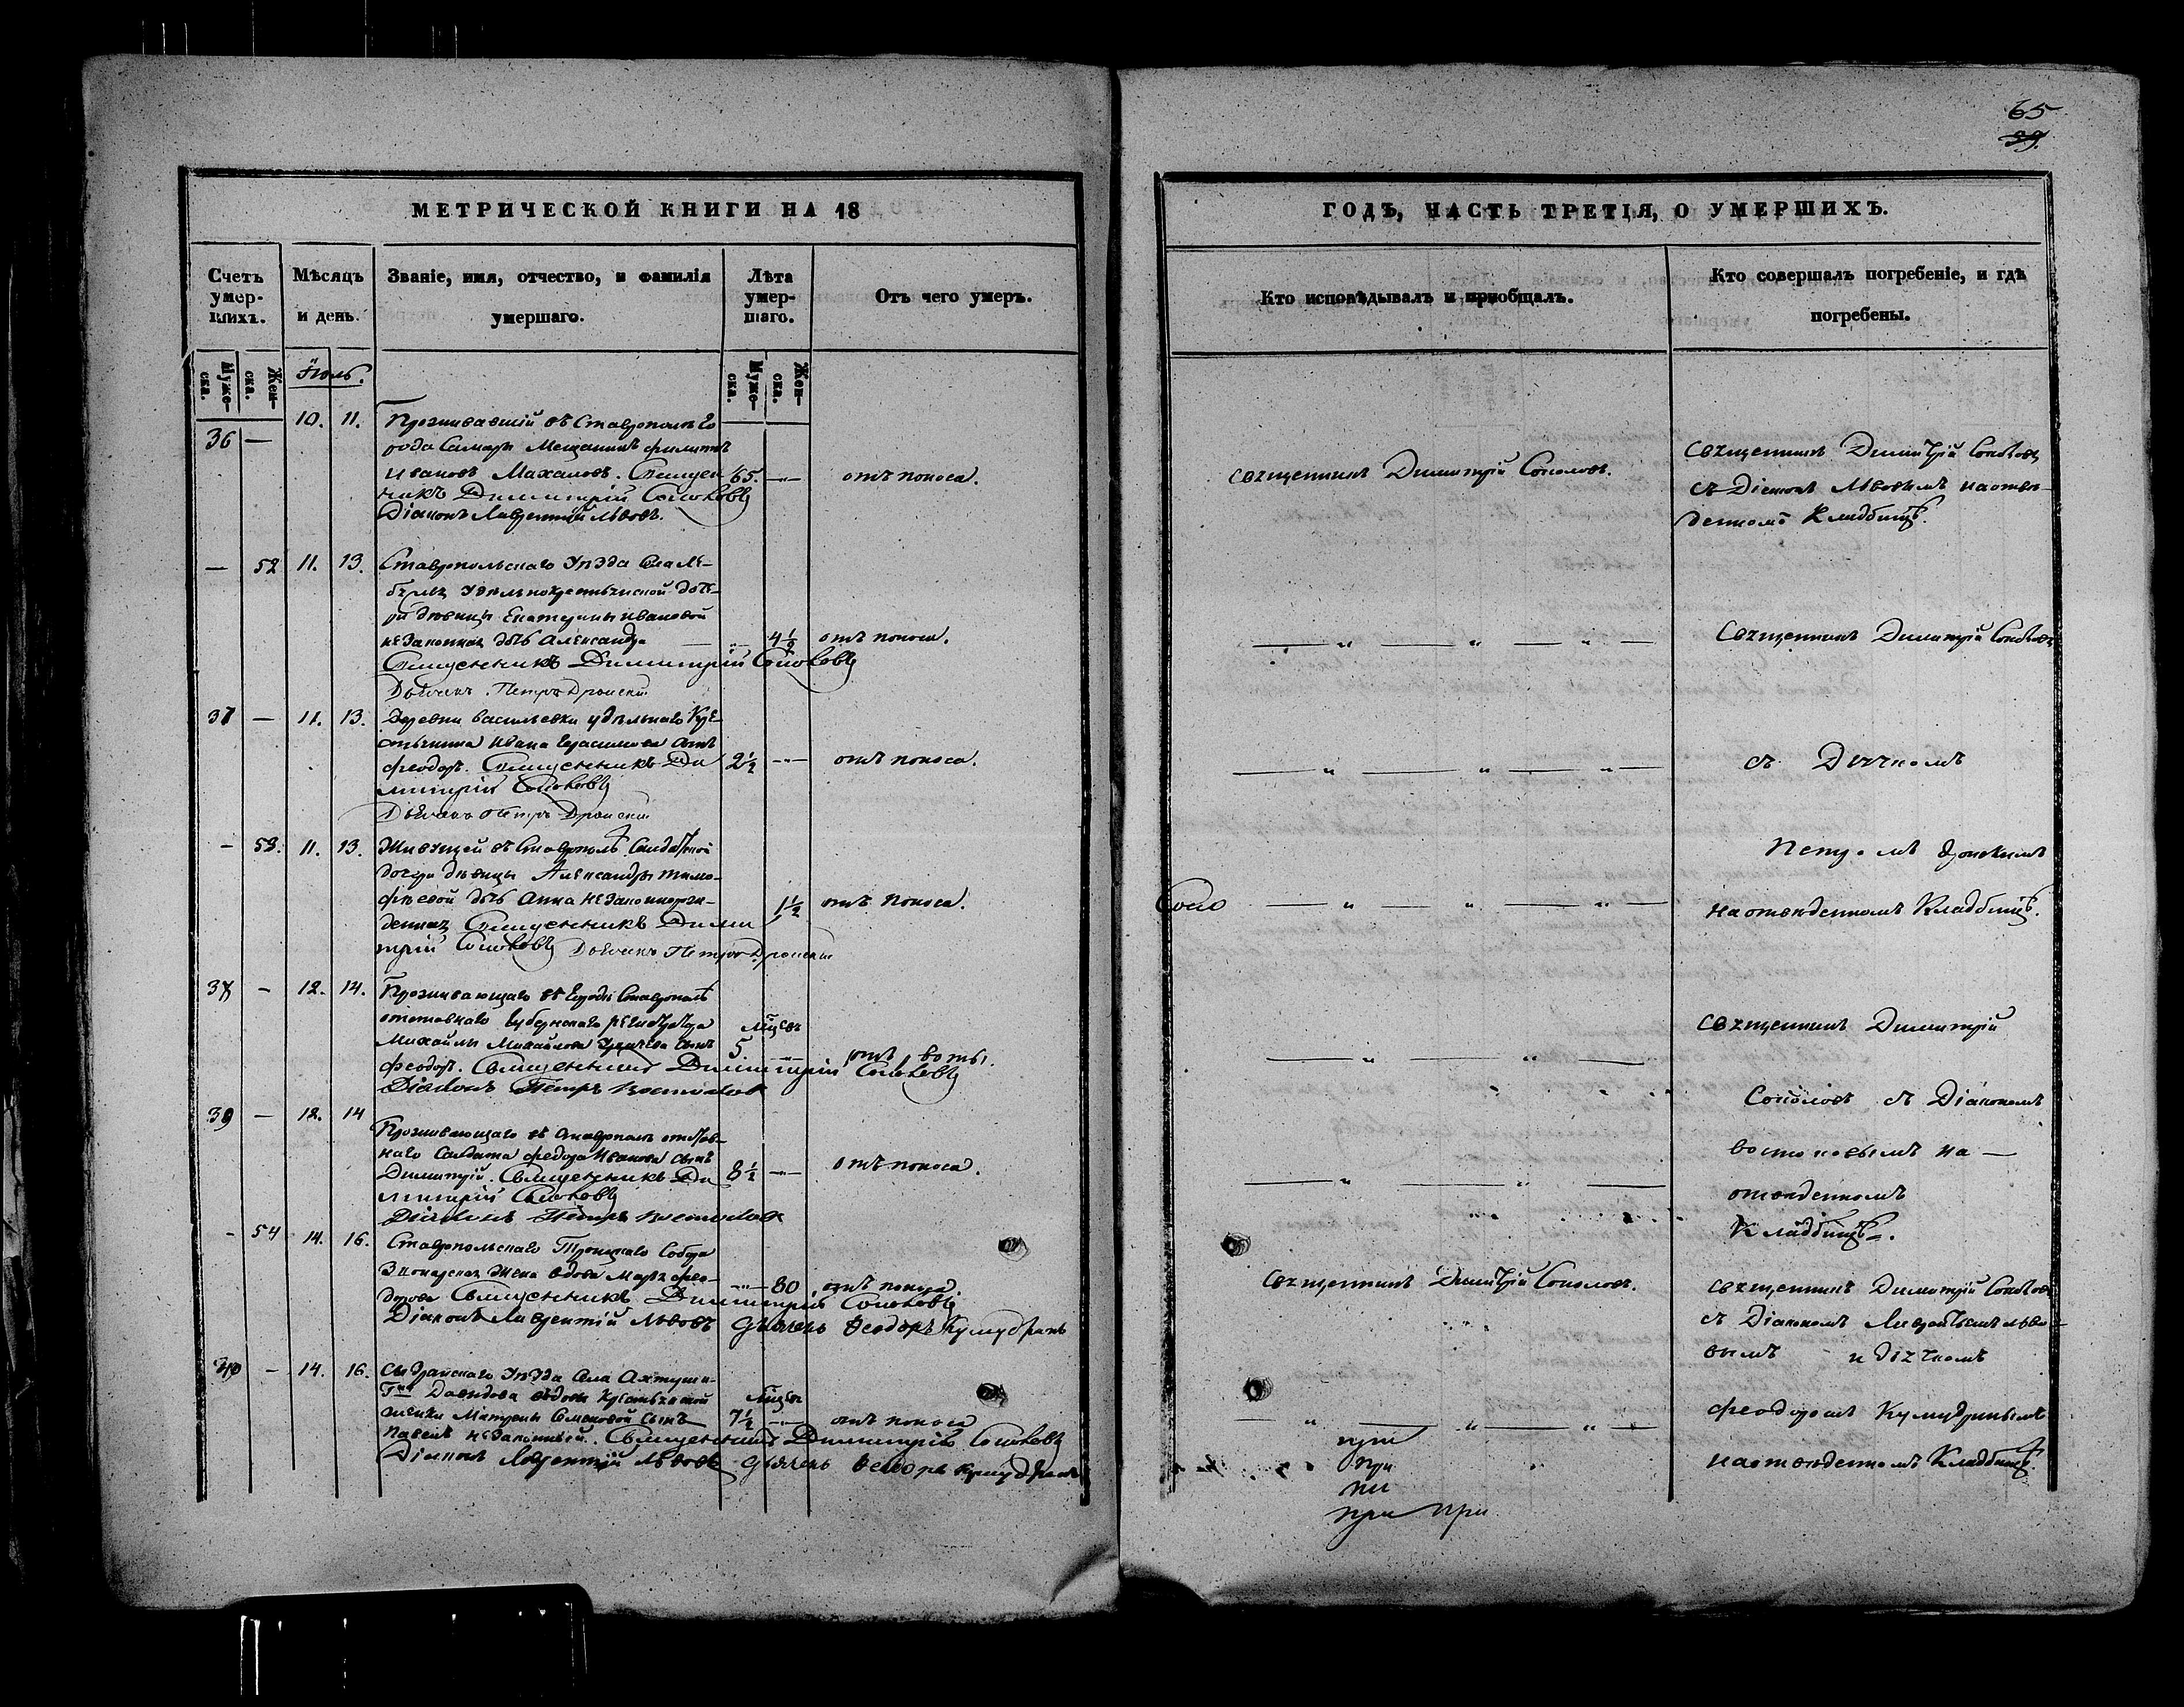 65
39.
МЕТРИЧЕСКОЙ КНИГИ НА 18
ГОДЪ, ЧАСТЬ ТРЕТІЯ, О УМЕРШИХЪ.
Счетъ умер-шихъ.
Мѣсяцъ и день.
Званіе, имя, отчество, и фамилія умершаго.
Лѣта умер-шаго.
Отъ чего умеръ.
Кто исповѣдывалъ и пріобщалъ.
Кто совершалъ погребеніе, и гдѣ погребены.
Муже-ска.
Жен-ска.
Іюль.
Муже-ска.
Жен-ска.
36 — 10. 11.
Проживавшій въ Ставрополѣ го
рода Самары Мещанинъ Филиппъ
Ивановъ Махаловъ. Священ
никъ Димитрій Соколовъ
Діаконъ Лаврентій Львовъ.
65. —
отъ поноса.
Священникъ Димитрій Соколовъ.
Священникъ Димитрій Соколовъ
съ Діакономъ Львовымъ на отве-
денномъ Кладбищѣ.
— 52 11. 13.
Ставропольскаго Уѣзда
удѣльнокрестьянской доче-
ри дѣвицы Екатерины Ивановой
незаконная дочь Александра
Священникъ Димитрій Соколовъ
Дьячекъ Петръ
4½
отъ поноса.
Священникъ Димитрій Соколовъ
37 — 11. 13.
Деревни Васильевки удѣльнаго Кре-
стьянина Ивана Герасимова сынъ
Феодоръ. Священникъ Ди
митрій Соколовъ
Дьячекъ Петръ
2½ —
отъ поноса.
съ Дьячкомъ
— 53. 11. 13.
Живущей въ Ставрополѣ Солдатской
дочери дѣвицы Александры Тимо-
фѣевой дочь Анна незаконнорож-
денная Священникъ Дими
трій Соколовъ Дьячекъ Петръ
1½
отъ поноса.
Петромъ
Соко
на отведенномъ Кладбищѣ.
38 — 12. 14.
Проживающаго въ Городѣ Ставрополѣ
отставнаго Губернскаго регистратора
Михайлы Михайлова сынъ
Феодоръ. Священникъ Димитрій Соколовъ
Діаконъ Петръ Востоковъ
мѣсяц.
5. —
Священникъ Димитрій
Соколовъ съ Діакономъ
Востоковымъ на —
отведенномъ
Кладбищѣ.
39 — 12. 14
Проживающаго въ Ставрополѣ отстав-
наго Солдата Федора Иванова сынъ
Димитрій. Священникъ Ди
митрій Соколовъ
Діаконъ Петръ Востоковъ
8½ —
отъ поноса.
— 54 14. 16.
Ставропольскаго Троицкаго Собора
Пономарская жена вдова Марья Фео-
дорова Священникъ Димитрій Соколовъ
Діаконъ Лаврентій Львовъ Дьячекъ Феодоръ Кумудринъ
— 80
отъ поноса.
Священникъ Димитрій Соколовъ.
Священникъ Димитрій Соколовъ
съ Діакономъ Лаврентьемъ Льво-
вымъ и дьячкомъ
40 — 14. 16.
Сызранскаго Уѣзда Села Ахтуши
Гна Давыдова вдовы Крестьянской
женки Матрены Семеновой сынъ
Павелъ незаконный. Священникъ Димитрій Соколовъ
Діаконъ Лаврентій Львовъ Дьячекъ Феодоръ Кумудринъ
мѣсяц.
7½ —
отъ поноса
Феодоромъ Кумудринымъ
на отведенномъ Кладбищѣ.
при
при
пи
при при